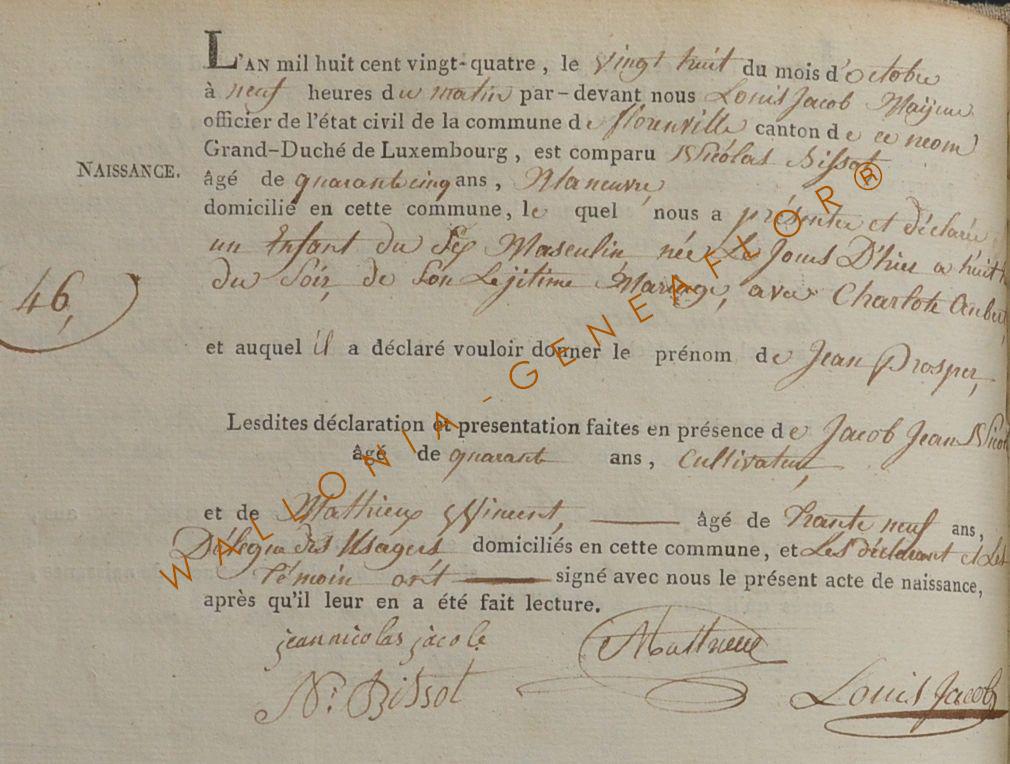 L'AN mil huit cent vingt-quatre, le vingt huit du mois d'octobre
à neuf heures du matin par-devant nous Louis Jacob
officier de l'état civil de la commune de florenville canton de ce neom
Grand-Duché de Luxembourg, est comparu Nicolas Bissot
NAISSANCE.
âgé de quarante cinq ans, Maneuvre
domicilié en cette commune, le quel nous a présenter et déclarée
un Enfant du Sex Masculin née Le Jours D'hier a huit h
46,
du Soir, de Son Lejitime Mariage, avec Charlote
et auquel il a déclaré vouloir donner le prénom de Jean Prosper,
Lesdites déclaration et présentation faites en présence de Jacob Jean Nicol
âgé de quarante ans, Cultivateur,
et de Mathieux Vincent, âgé de trante neuf ans,
des Usagers domiciliés en cette commune, et Les déclarant et Les
témoin ont signé avec nous le présent acte de naissance,
après qu'il leur en a été fait lecture.
jean nicolas jacob
N. Bissot
Louis Jacob
WALLONIA-GENEAFLOR®